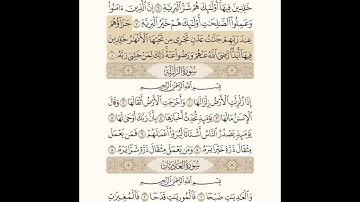 خَٰلِدِينَ فِيهَآ أُو۟لَٰٓئِكَ هُمْ شَرُّ ٱلْبَرِيَّةِ ۝ إِنَّ ٱلَّذِينَ ءَامَنُوا۟
وَعَمِلُوا۟ ٱلصَّٰلِحَٰتِ أُو۟لَٰٓئِكَ هُمْ خَيْرُ ٱلْبَرِيَّةِ ۝ جَزَآؤُهُمْ
عِندَ رَبِّهِمْ جَنَّٰتُ عَدْنٍ تَجْرِى مِن تَحْتِهَا ٱلْأَنْهَٰرُ خَٰلِدِينَ
فِيهَآ أَبَدًا رَّضِىَ ٱللَّهُ عَنْهُمْ وَرَضُوا۟ عَنْهُ ذَٰلِكَ لِمَنْ خَشِىَ رَبَّهُۥ ۝
سُورَةُ ٱلزَّلْزَلَةِ
بِسْمِ ٱللَّهِ ٱلرَّحْمَٰنِ ٱلرَّحِيمِ
إِذَا زُلْزِلَتِ ٱلْأَرْضُ زِلْزَالَهَا ۝ وَأَخْرَجَتِ ٱلْأَرْضُ أَثْقَالَهَا ۝ وَقَالَ
ٱلْإِنسَٰنُ مَا لَهَا ۝ يَوْمَئِذٍ تُحَدِّثُ أَخْبَارَهَا ۝ بِأَنَّ رَبَّكَ أَوْحَىٰ لَهَا ۝
يَوْمَئِذٍ يَصْدُرُ ٱلنَّاسُ أَشْتَاتًا لِّيُرَوْا۟ أَعْمَٰلَهُمْ ۝ فَمَن يَعْمَلْ
مِثْقَالَ ذَرَّةٍ خَيْرًا يَرَهُۥ ۝ وَمَن يَعْمَلْ مِثْقَالَ ذَرَّةٍ شَرًّا يَرَهُۥ ۝
سُورَةُ ٱلْعَادِيَاتِ
بِسْمِ ٱللَّهِ ٱلرَّحْمَٰنِ ٱلرَّحِيمِ
وَٱلْعَٰدِيَٰتِ ضَبْحًا ۝ فَٱلْمُورِيَٰتِ قَدْحًا ۝ فَٱلْمُغِيرَٰتِ